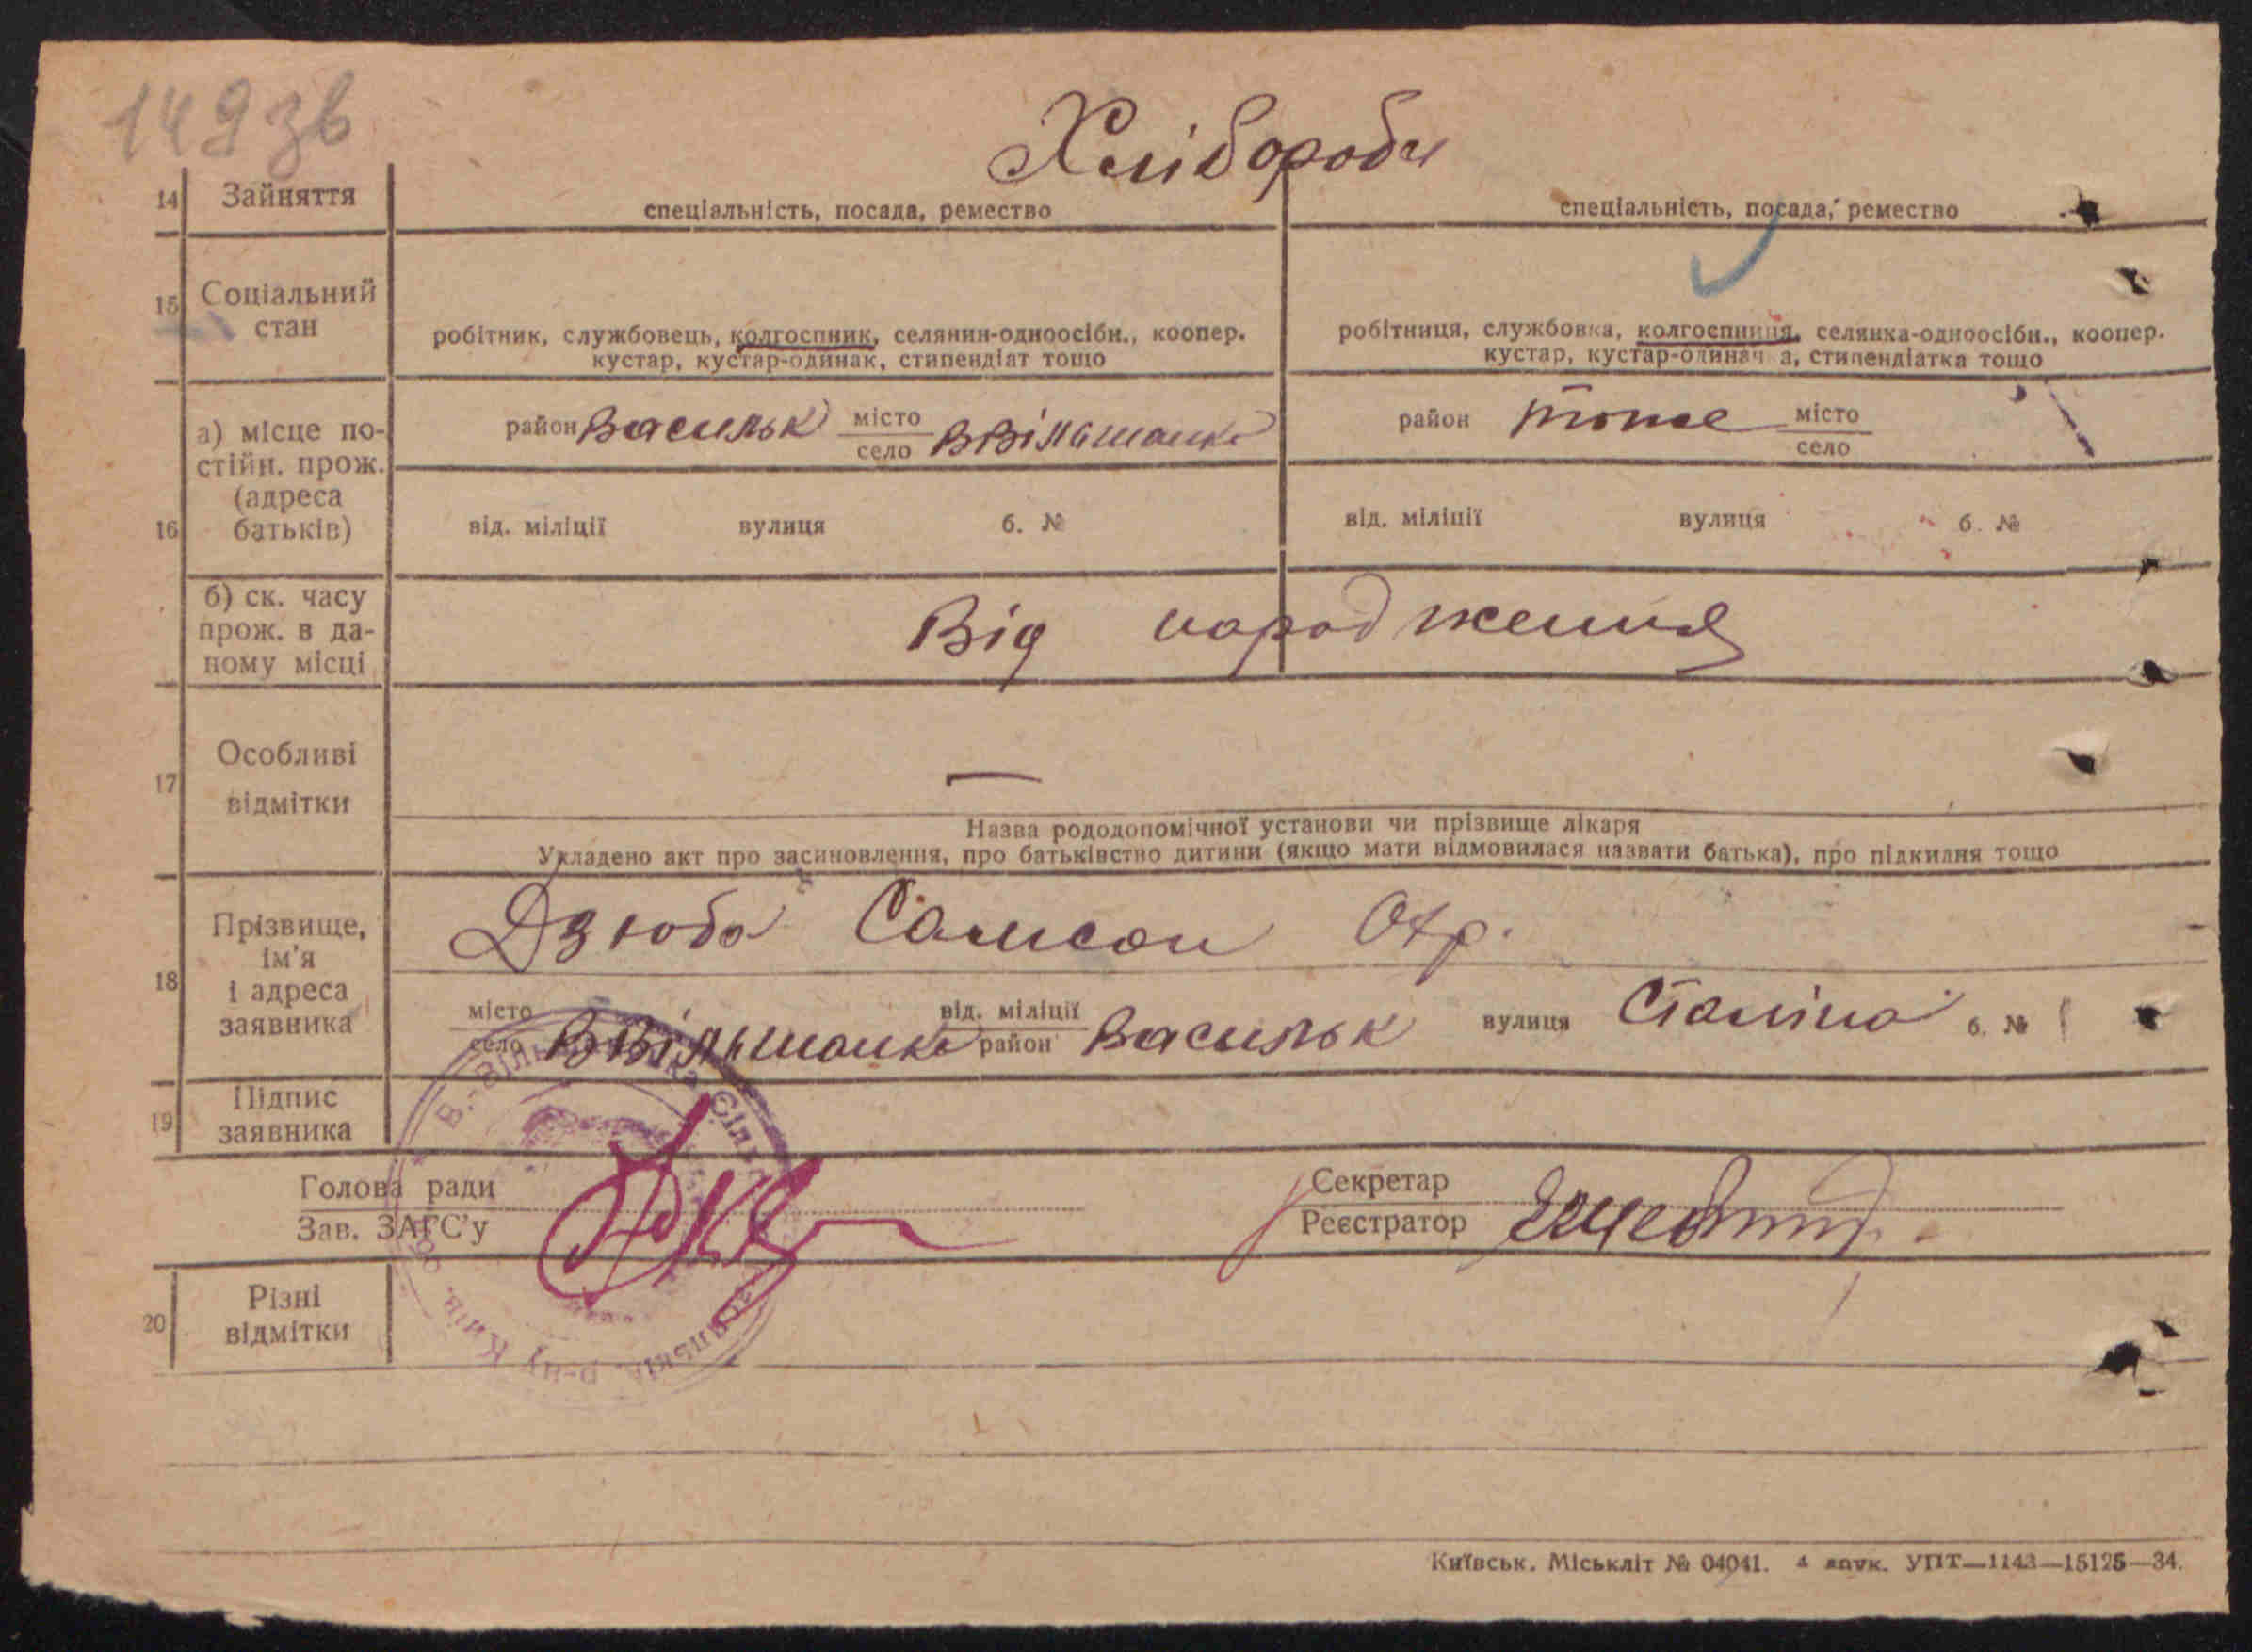 149 зв
Хлібороби
14 Зайняття
спеціальність, посада, ремество
спеціальність, посада, ремество
15 Соціальний стан
робітник, службовець, колгоспник, селянин-одноосібн., коопер.
кустар, кустар-одинак, стипендіат тощо
робітниця, службовка, колгоспниця, селянка-одноосібн., коопер.
кустар, кустар-одиначка, стипендіатка тощо
16
а) місце по-
стійн. прож.
(адреса
батьків)
район Васильк місто
село ВВільшанка
район тоже місто
село
від. міліції вулиця б. №
від. міліції вулиця б. №
б) ск. часу
прож. в да-
ному місці
Від народження
17 Особливі
відмітки
—
Назва рододопомічної установи чи прізвище лікаря
Укладено акт про засиновлення, про батьківство дитини (якщо мати відмовилася назвати батька), про підкидня тощо
18
Прізвище,
ім'я
і адреса
заявника
Дзюба Самсон
місто
село ВВільшанка від. міліції
район Васильк вулиця Сталіна б. №
19 Підпис
заявника
Голова ради
Зав. ЗАГС'у
Секретар
Реєстратор
20 Різні
відмітки
Київськ. Міськліт № 04041. УПТ—1143—15125—34.